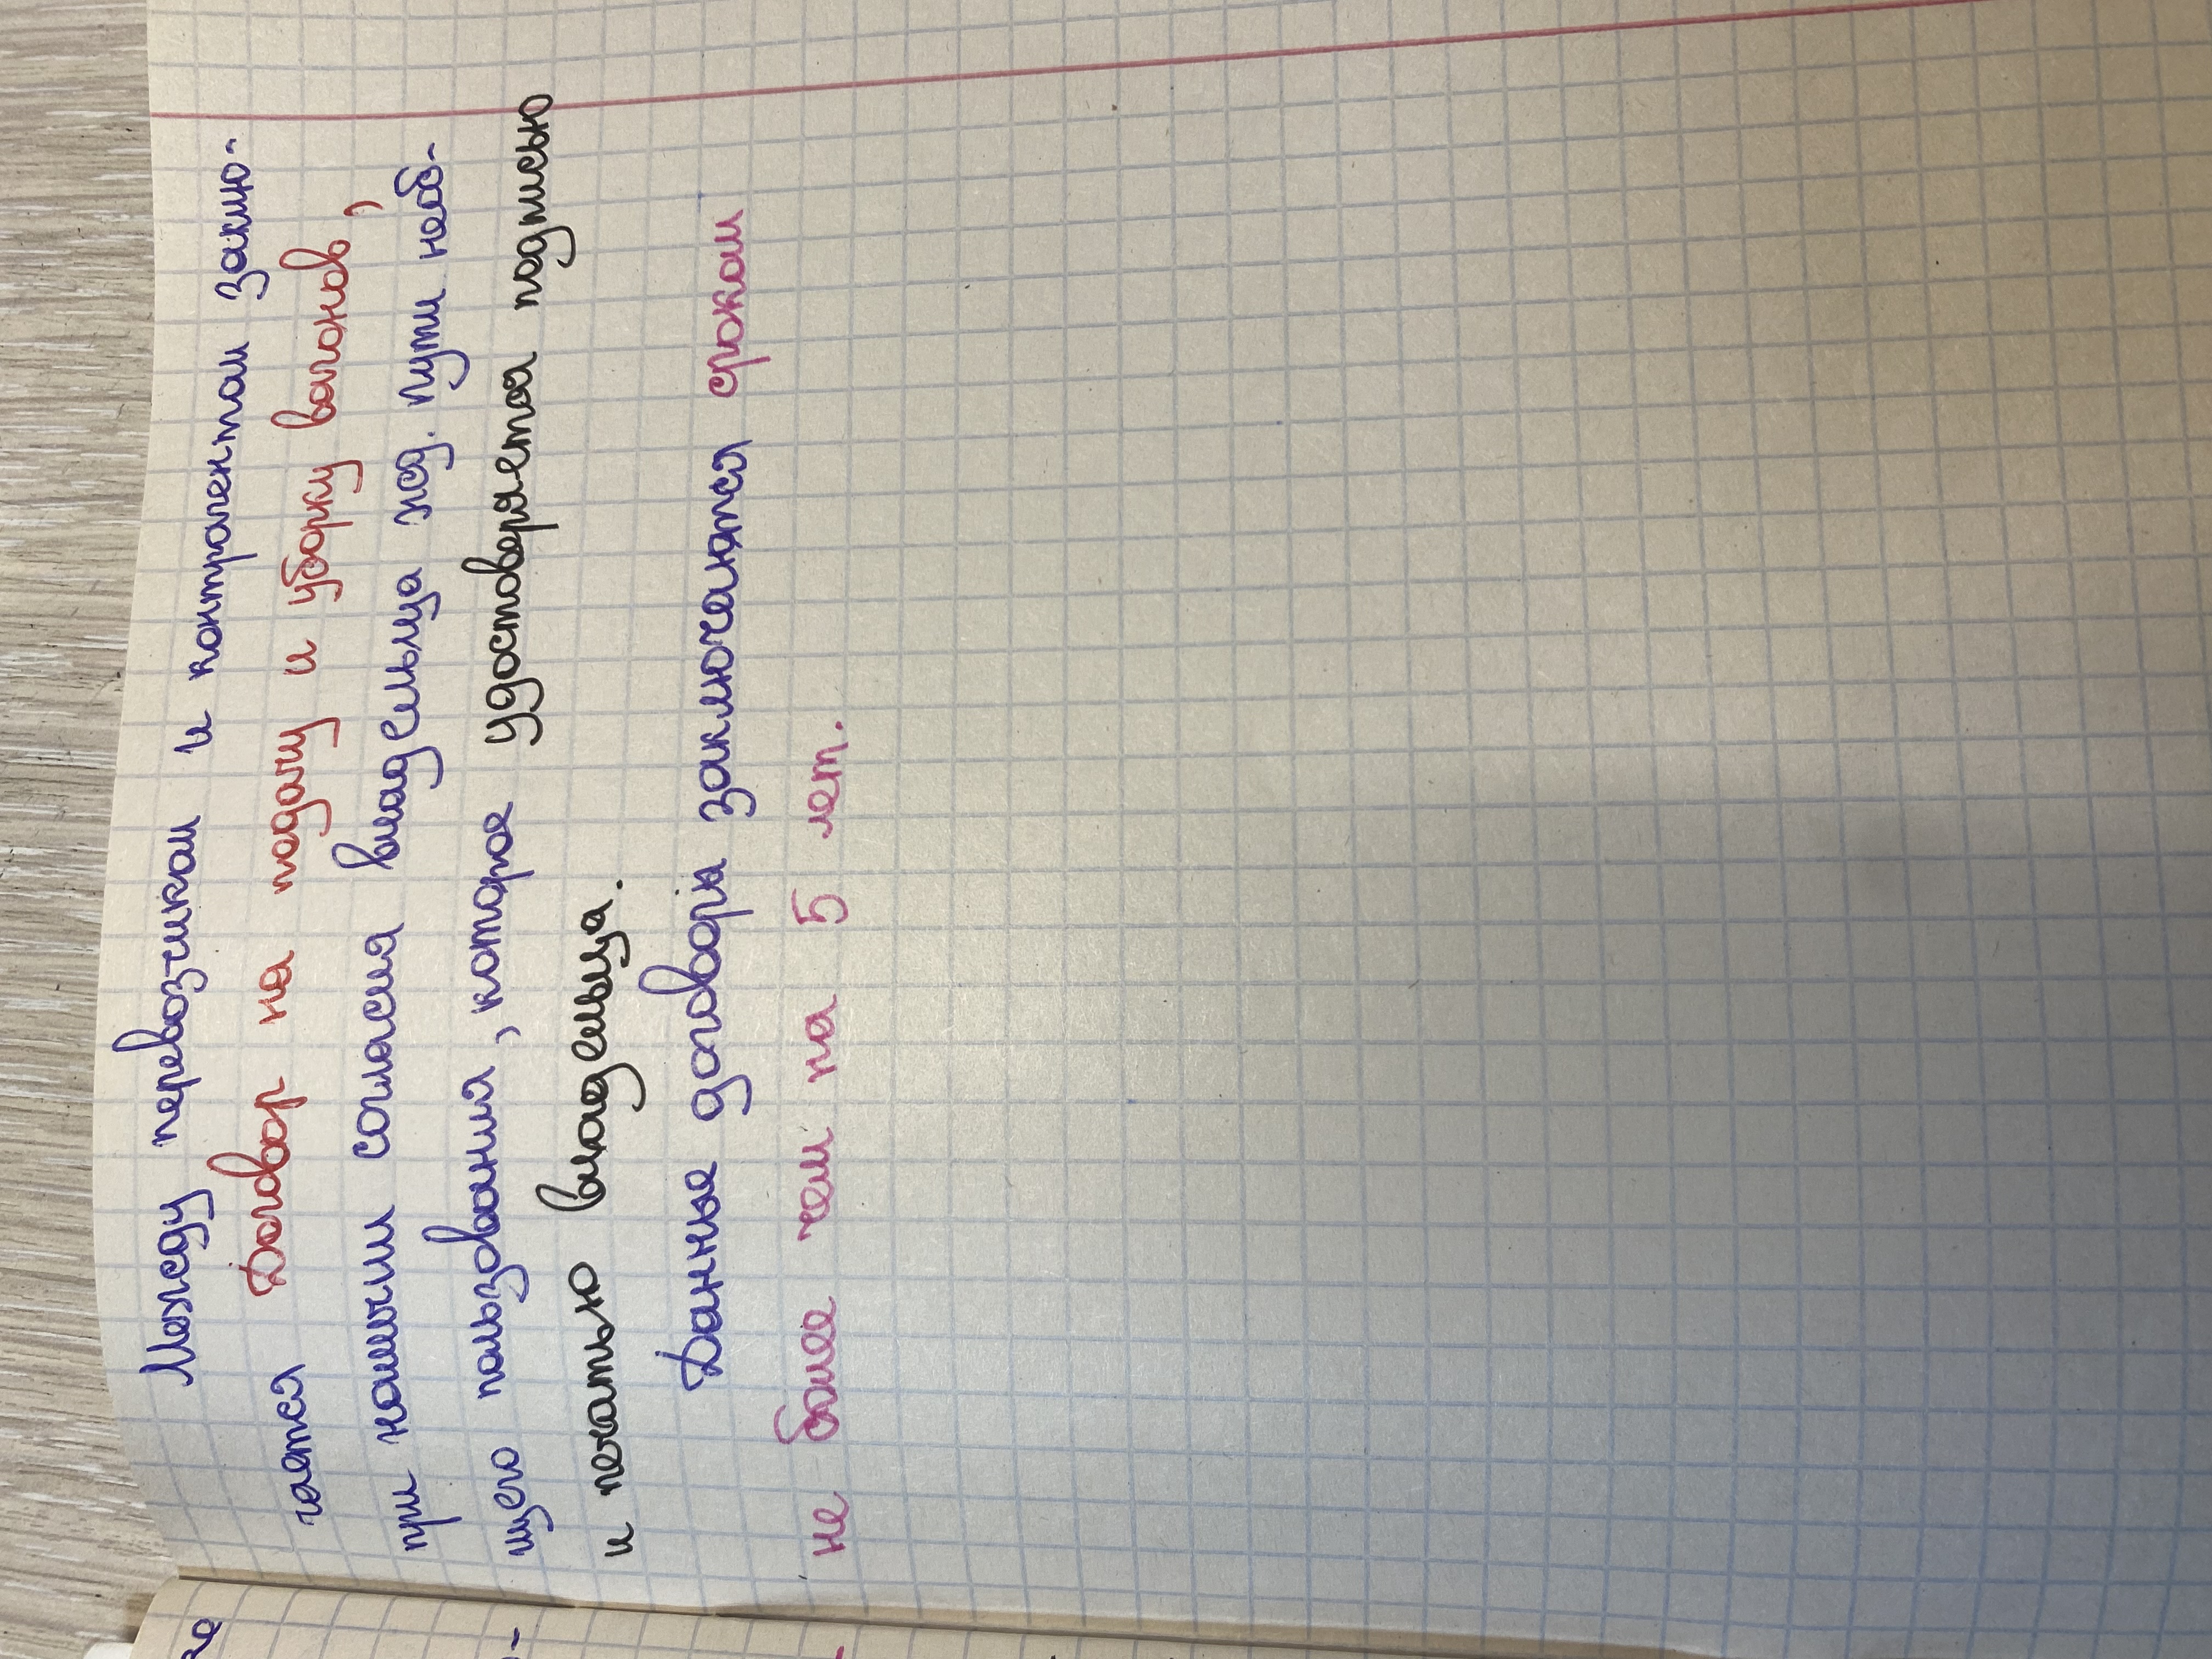 Между перевозчиком и контрагентом заклю-
чается Договор на подачу и уборку вагонов,
при наличии согласия владельца жд. пути необ-
щего пользования, которое удостоверяется подписью
и печатью владельца.
Данные договоры заключаются сроком
не более чем на 5 лет.